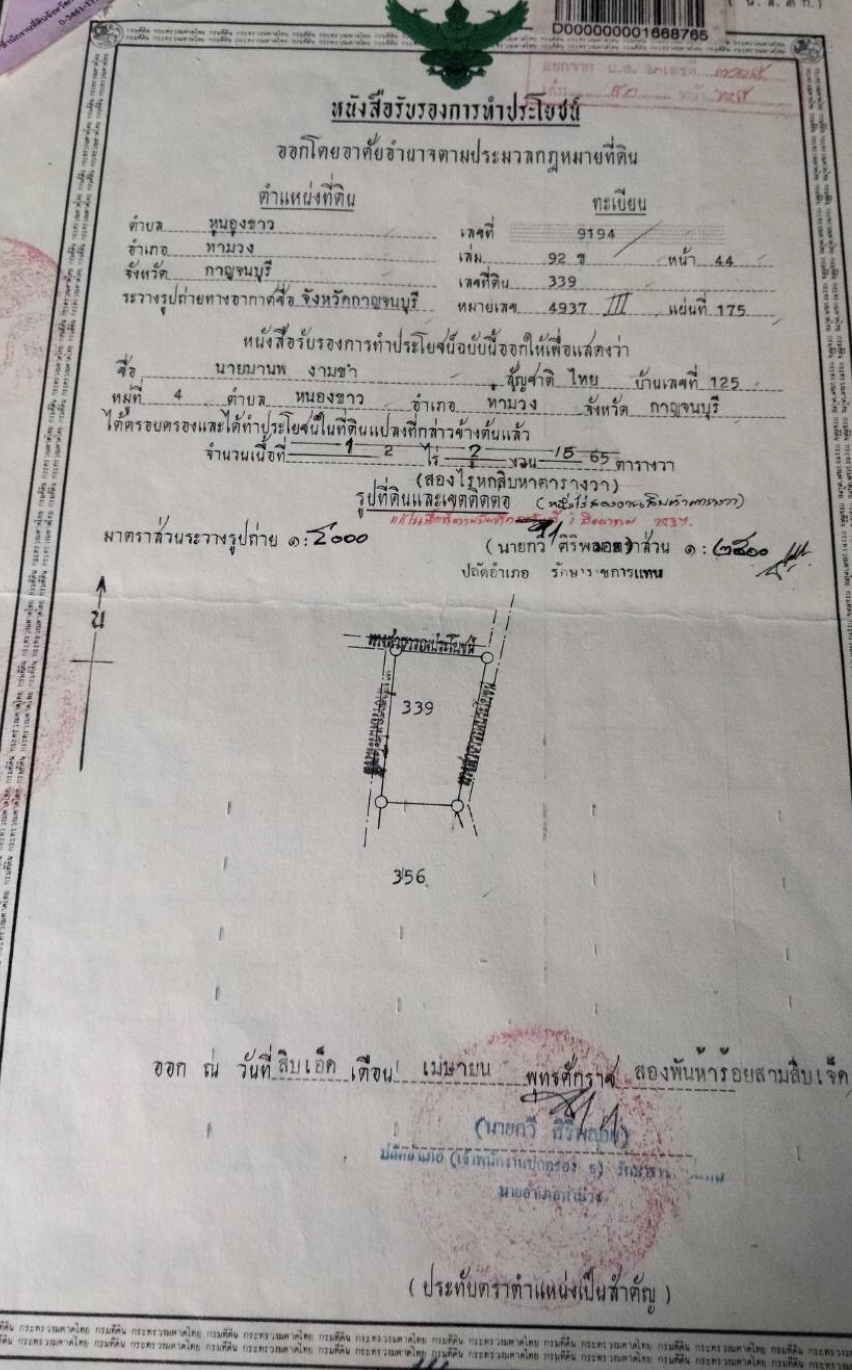 ( น.ส.๓ ก.)
D000000001668765
หนังสือรับรองการทำประโยชน์
ออกโดยอาศัยอำนาจตามประมวลกฎหมายที่ดิน
ตำแหน่งที่ดิน ทะเบียน
ตำบล หนองขาว เลขที่ 9194
อำเภอ ท่าม่วง เล่ม 92 ข หน้า 44
จังหวัด กาญจนบุรี เลขที่ดิน 339
ระวางรูปถ่ายทางอากาศชื่อ จังหวัดกาญจนบุรี หมายเลข 4937 III แผ่นที่ 175
หนังสือรับรองการทำประโยชน์ฉบับนี้ออกให้เพื่อแสดงว่า
ชื่อ นายมานพ งามขำ สัญชาติ ไทย บ้านเลขที่ 125
หมู่ที่ 4 ตำบล หนองขาว อำเภอ ท่าม่วง จังหวัด กาญจนบุรี
ได้ครอบครองและได้ทำประโยชน์ในที่ดินแปลงที่กล่าวข้างต้นแล้ว
จำนวนเนื้อที่ 1 2 ไร่ 2 งาน 15 65 ตารางวา
(สองไร่หกสิบห้าตารางวา)
รูปที่ดินและเขตติดต่อ (หนึ่งไร่สองงานสิบห้าตารางวา)
มาตราส่วนระวางรูปถ่าย ๑:๕๐๐๐ (นายกวี ศิริพลอย) มาตราส่วน ๑:
ปลัดอำเภอ รักษาราชการแทน
น
ทางสาธารณประโยชน์
339
356
ออก ณ วันที่ สิบเอ็ด เดือน เมษายน พุทธศักราช สองพันห้าร้อยสามสิบเจ็ด
(นายกวี ศิริพลอย)
ปลัดอำเภอ (เจ้าพนักงานปกครอง ๖) รักษาราชการแทน
นายอำเภอท่าม่วง
(ประทับตราตำแหน่งเป็นสำคัญ)
กรมที่ดิน กระทรวงมหาดไทย